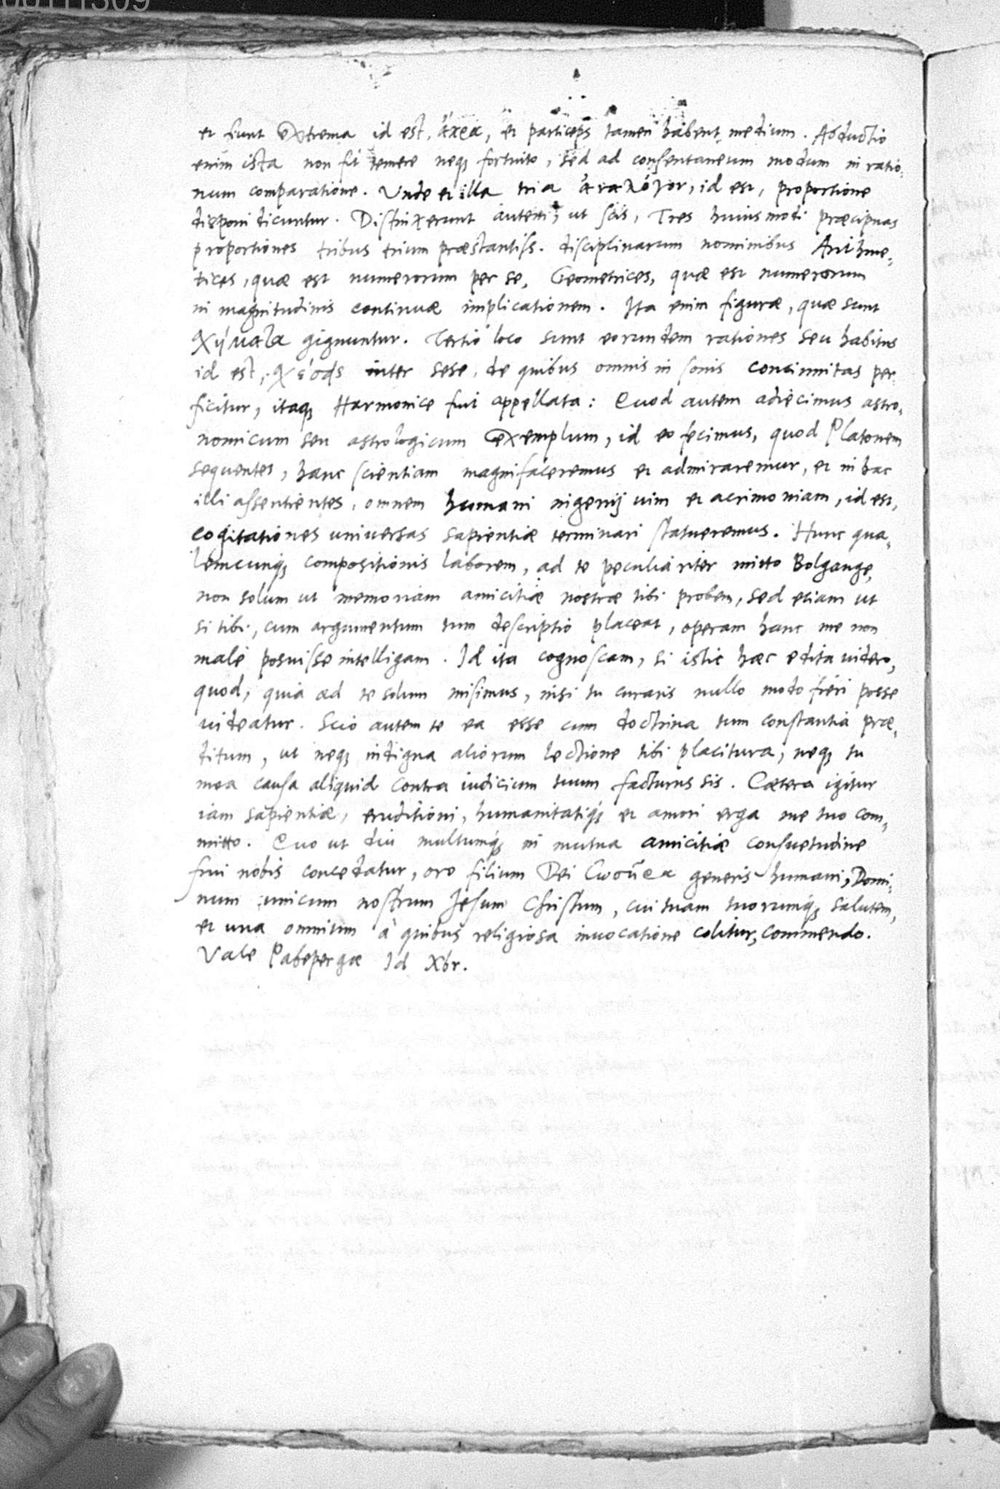 et sunt extrema id est, ἄκρα, et particeps tamen habent medium. Adductio
enim ista non fit temere neq; fortuito, sed ad consentaneum modum in ratio,
num comparatione. Unde et illa tria ἀναλόγον, id est, proportione
disponi dicuntur. Distinxerunt autem, ut scis, Tres huiusmodi præcipuas
proportiones tribus trium præstantiss. disciplinarum nominibus Arithme,
tices, quæ est numerorum per se, Geometrices, quæ est numerorum
in magnitudinis continuæ implicationem. Ita enim figuræ, quæ sunt
σχήματα gignuntur. Tertio loco sunt eorundem rationes seu habitus
id est, σχέσεις inter sese, de quibus omnis in sonis concinnitas per
ficitur, itaq; Harmonice fuit appellata: Quod autem adiecimus astro,
nomicum seu astrologicum exemplum, id eo fecimus, quod Platonem
sequentes, hanc scientiam magnifaceremus et admiraremur, et in hac
illi assentientes, omnem humani ingenij vim et acrimoniam, id est,
cogitationes universas sapientiæ terminari statueremus. Hunc qua,
lemcunq; compositionis laborem, ad te peculiariter mitto Bolgange,
non solum ut memoriam amicitiæ nostræ tibi probem, sed etiam ut
si tibi, cum argumentum tum descriptio placeat, operam hanc me non
male posuisse intelligam. Id ita cognoscam, si istic hæc edita videro,
quod, quia ad te solum misimus, nisi tu curaris nullo modo fieri posse
videatur. Scio autem te ea esse cum doctrina tum constantia præ,
ditum, ut neq; indigna aliorum lectione tibi placitura, neq; tu
mea causa aliquid contra iudicium tuum facturus sis. Cætera igitur
iam sapientiæ, eruditioni, humanitatiq; et amori erga me tuo com,
mitto. Quo ut diu multumq; in mutua amicitiæ consuetudine
frui nobis concedatur, oro filium Dei σωτῆρα generis humani, Domi,
num unicum nostrum Jesum Christum, cui tuam tuorumq; salutem,
et una omnium à quibus religiosa invocatione colitur, commendo.
Vale Pabepergæ Id Xbr.